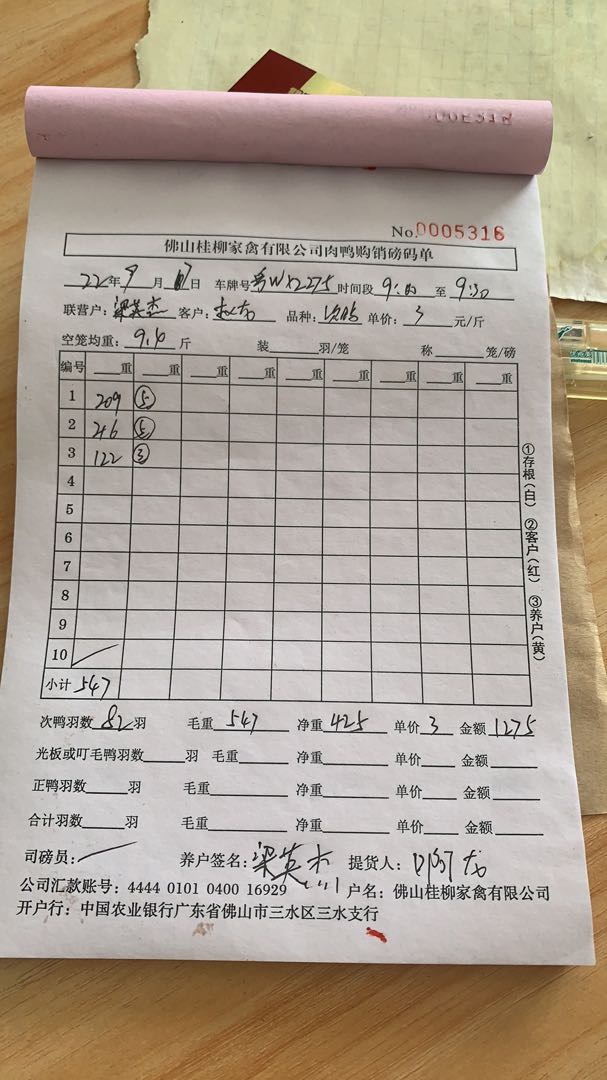 No.0005316
佛山桂柳家禽有限公司肉鸭购销磅码单
22年9月17日 车牌号粤WX2275时间段9:00至9:30
联营户:梁英杰 客户: 品种:次鸭 单价:3元/斤
空笼均重:9.40斤 装 羽/笼 称 笼/磅
编号 重 重 重 重 重 重 重 重 重
1 209 ⑤
2 216 ⑤
3 122 ③
4
5
6
7
8
9
10
小计 547
①存根(白) ②客户(红) ③养户(黄)
次鸭羽数82羽 毛重547 净重425 单价3 金额1275
光板或叮毛鸭羽数 羽 毛重 净重 单价 金额
正鸭羽数 羽 毛重 净重 单价 金额
合计羽数 羽 毛重 净重 单价 金额
司磅员: 养户签名:梁英杰 提货人:
公司汇款账号:4444 0101 0400 16929 户名:佛山桂柳家禽有限公司
开户行:中国农业银行广东省佛山市三水区三水支行